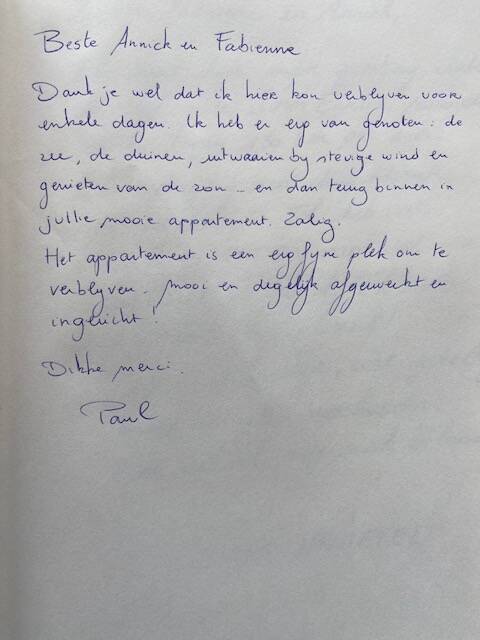 Beste Annick en Fabienne
Dank je wel dat ik hier kon verblijven voor
enkele dagen. Ik heb er erg van genoten: de
zee, de duinen, uitwaaien bij stevige wind en
genieten van de zon - en dan terug binnen in
jullie mooie appartement. Zalig.
Het appartement is een erg fijne plek om te
verblijven - mooi en degelijk afgewerkt en
ingericht!
Dikke merci.
Paul